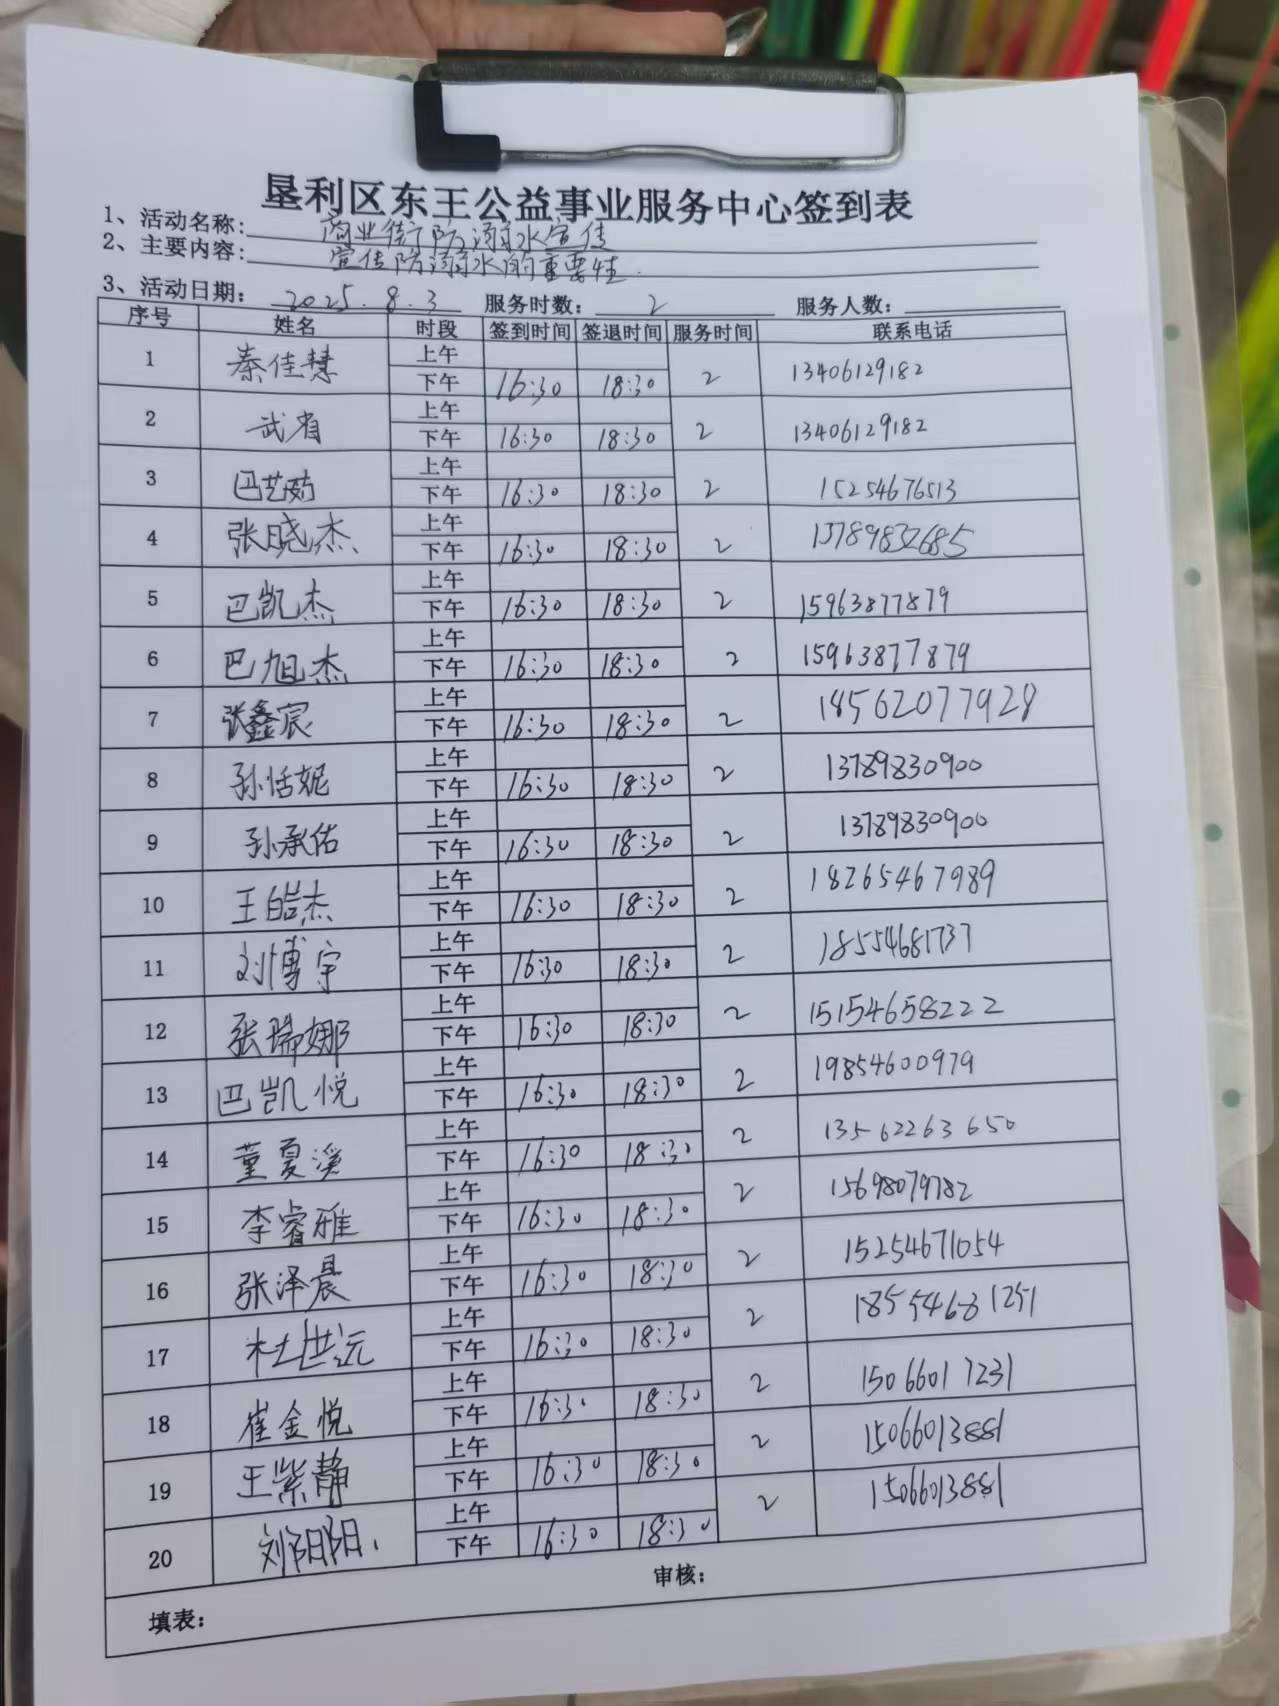 垦利区东王公益事业服务中心签到表
1、活动名称: 商业街防溺水宣传
2、主要内容: 宣传防溺水的重要性.
3、活动日期: 2025.8.3 服务时数: 2 服务人数:
序号 姓名 时段 签到时间 签退时间 服务时间 联系电话
1 秦佳慧 上午
下午 16:30 18:30 2 13406129182
2 武省 上午
下午 16:30 18:30 2 13406129182
3 巴艺茹 上午
下午 16:30 18:30 2 15254676513
4 张晓杰 上午
下午 16:30 18:30 2 13789832685
5 巴凯杰 上午
下午 16:30 18:30 2 15963877879
6 巴旭杰 上午
下午 16:30 18:30 2 15963877879
7 张鑫宸 上午
下午 16:30 18:30 2 18562077928
8 孙恬妮 上午
下午 16:30 18:30 2 13789830900
9 孙承佑 上午
下午 16:30 18:30 2 13789830900
10 王皓杰 上午
下午 16:30 18:30 2 18265467989
11 刘博宇 上午
下午 16:30 18:30 2 18554681737
12 张瑞娜 上午
下午 16:30 18:30 2 15154658222
13 巴凯悦 上午
下午 16:30 18:30 2 19854600979
14 董夏溪 上午
下午 16:30 18:30 2 13562263650
15 李睿雅 上午
下午 16:30 18:30 2 15698079782
16 张泽晨 上午
下午 16:30 18:30 2 15254671054
17 杜世远 上午
下午 16:30 18:30 2 18554681251
18 崔金悦 上午
下午 16:30 18:30 2 15066017231
19 王紫静 上午
下午 16:30 18:30 2 15066013881
20 刘阳阳 上午
下午 16:30 18:30 2 15066013881
填表: 审核: